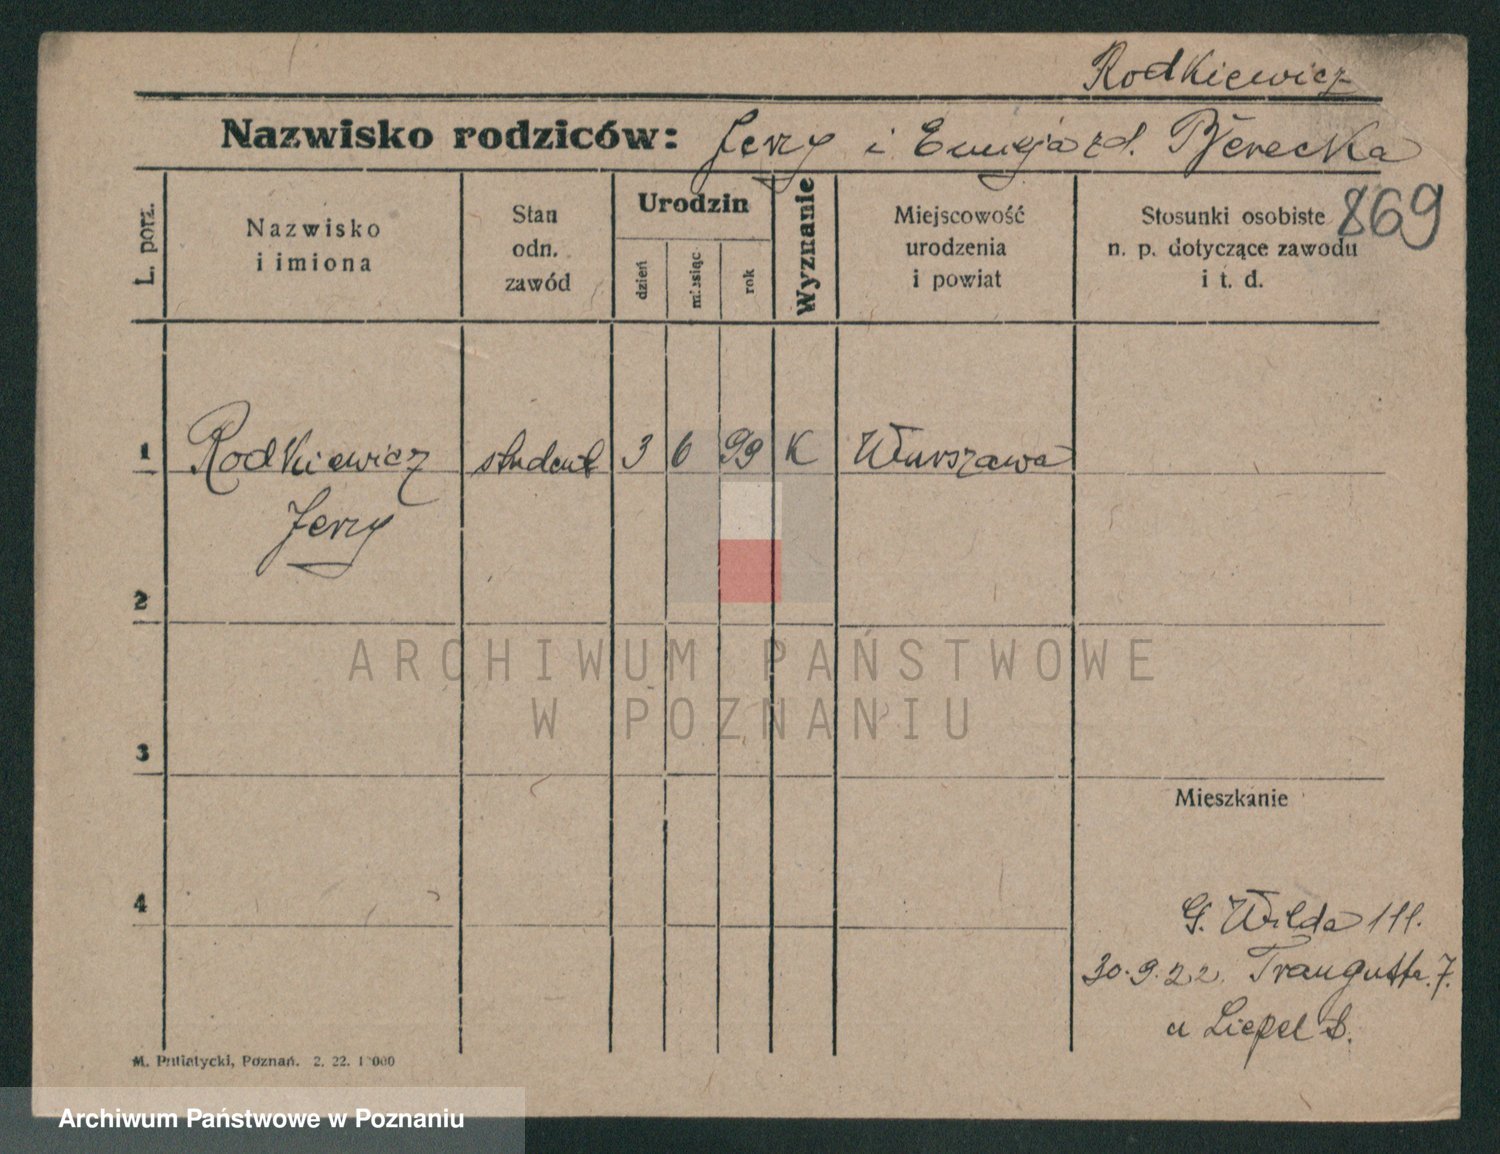 Rodkiewicz
Nazwisko rodziców: Jerzy i zd.
869
L. porz.
Nazwisko
i imiona
Stan
odn.
zawód
Urodzin
dzień
miesiąc
rok
Wyznanie
Miejscowość
urodzenia
i powiat
Stosunki osobiste
n. p. dotyczące zawodu
i t. d.
1 Rodkiewicz student 3 6 99 K Warszawa
Jerzy
2
3
4
Mieszkanie
G. Wilda 111.
30.9.22. Traugutta. 7.
u
M. Putiatycki, Poznań. 2. 22.
ARCHIWUM PAŃSTWOWE
W POZNANIU
Archiwum Państwowe w Poznaniu